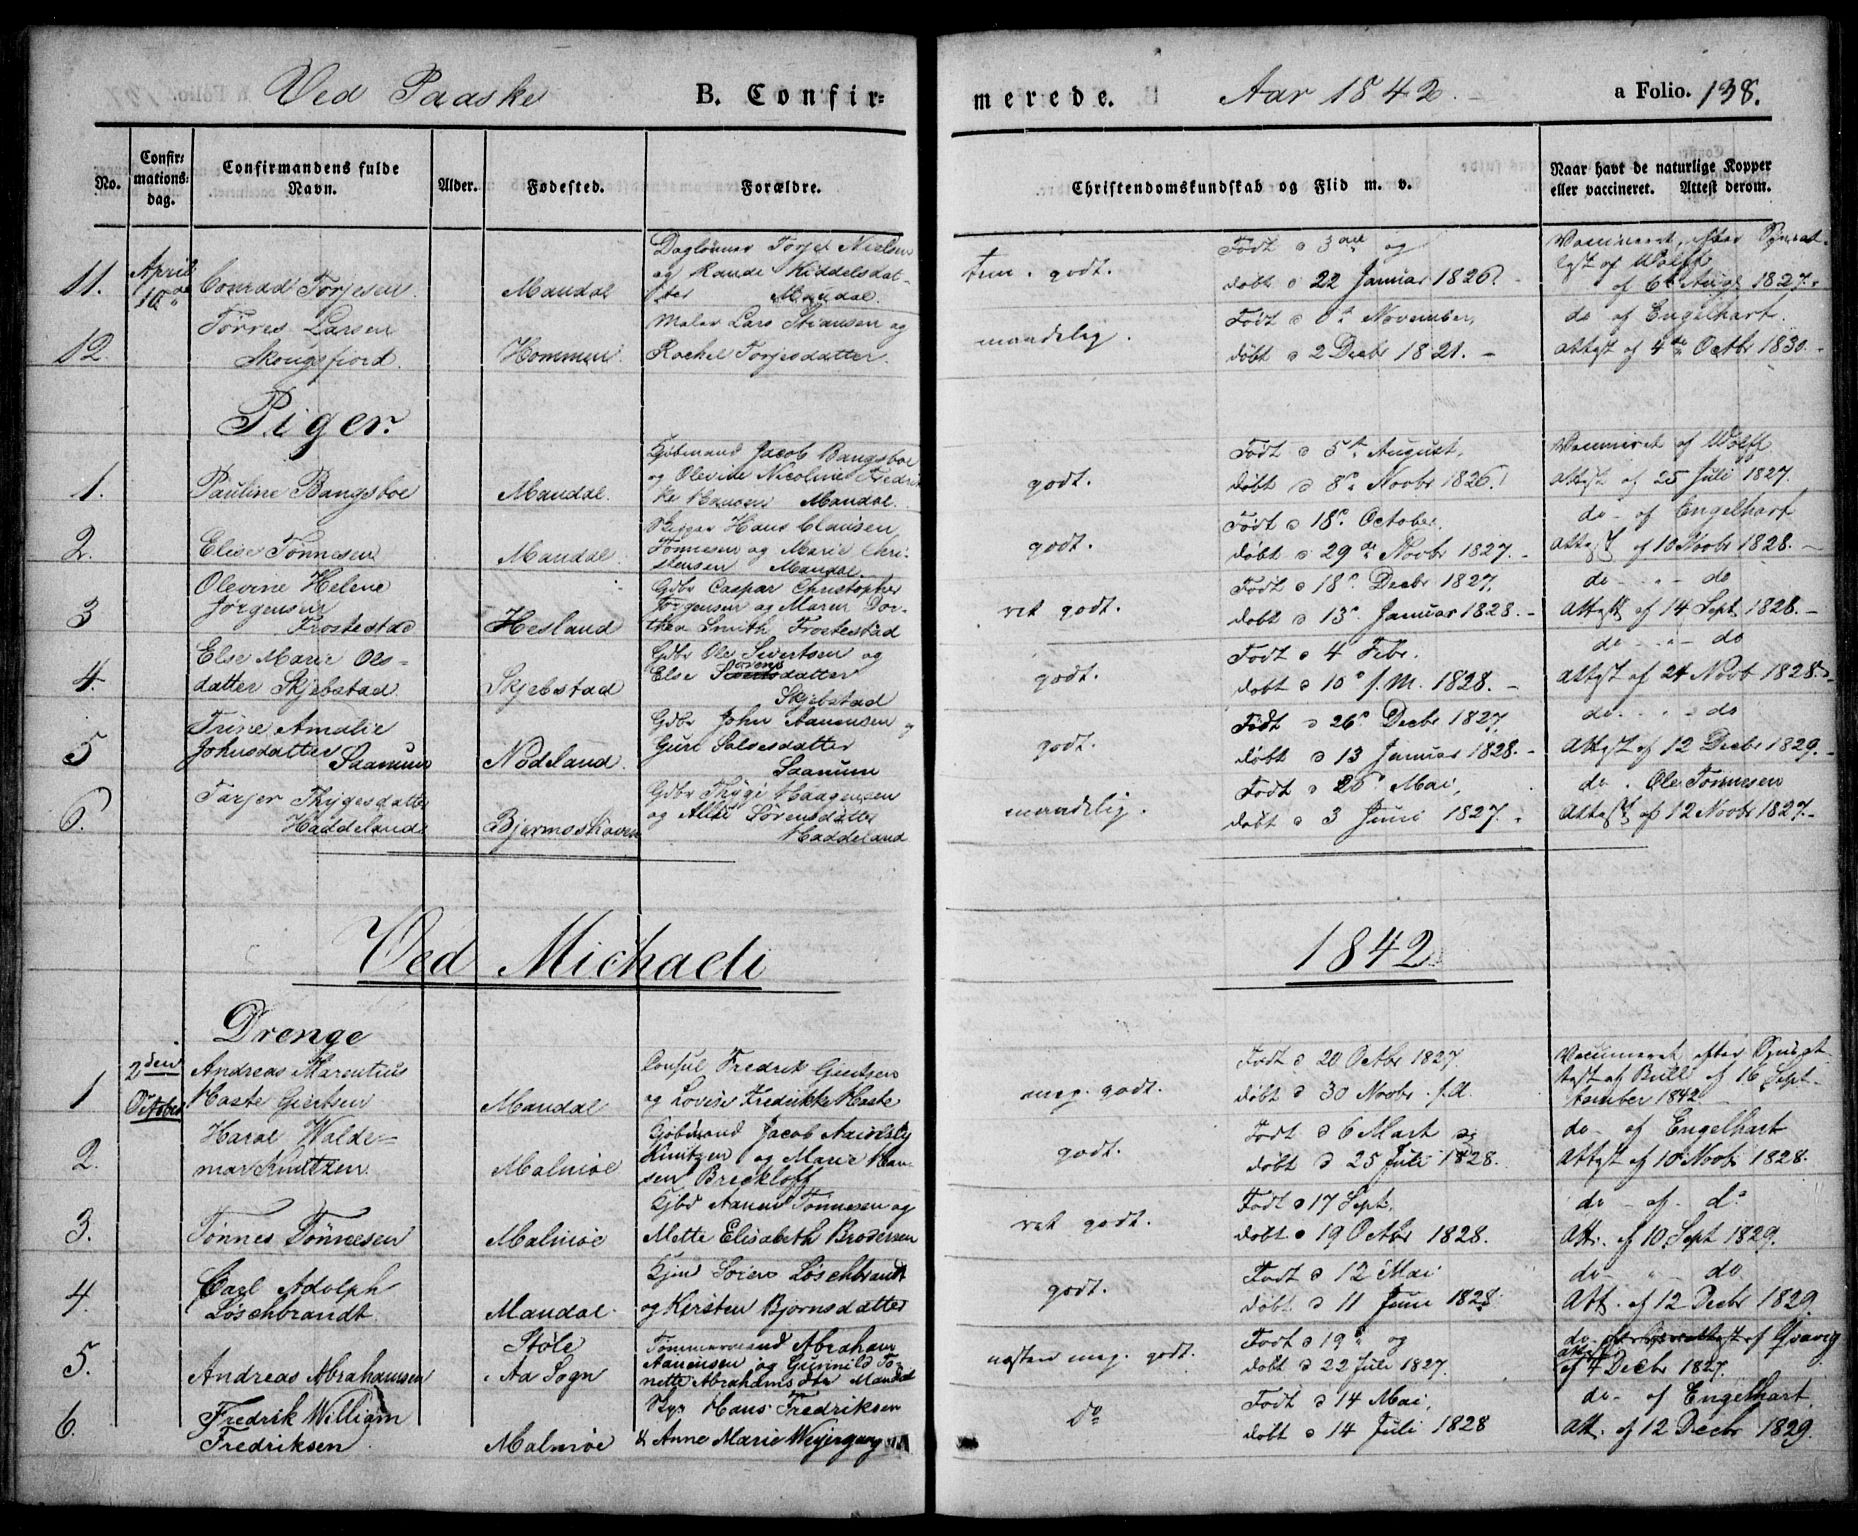 Ved Paaske B. Confir=
merede. Aar 1842. a Folio. 138.
No.
Confir=
mations=
dag.
Confirmandens fulde
Navn.
Alder.
Fødested.
Forældre.
Christendomskundskab og Flid m. v.
Naar havt de naturlige Kopper
eller vaccineret. Attest derom.
11. April 10de Conrad Torjesen Mandal
Daglønner Torjer Nielsen
og Rande Kiddelsdat-
ter Mandal.
tem. godt.
Født d 3die og
døbt d 22 Januar 1826.
Vaccineret, efter
Attest af Wolff
af 6te Aug 1827.
12. Tørres Larsen
Skougsfiord. Hommen
Maler Lars Stiansen og
Rachel Torjesdatter.
maadelig.
Født d November,
døbt d 2 Decbr 1821.
do af Engelhart.
attest af 4de Octbr 1830.
Piger.
1. Pauline Bangsboe Mandal.
Kjøbmand Jacob Bangsboe
og Olevine Nicoline Fredrik-
ke Hansen Mandal.
godt.
Født d 5te August,
døbt d 8de Novbr 1826.
Vaccineret af Wolff
attest af 25 Juli 1827.
2. Elise Tønnesen Mandal.
Hans Clausen
Tønnesen og Marie Chri-
stensen Mandal.
godt.
Født d 18de October
døbt d 29de Novbr 1827.
do - af Engelhart
attest af 10 Novbr 1828.
3. Olevine Helene
Jørgensen
Frostestad Hesland
Gdbr Caspar Christopher
Jørgensen og Maren Dor-
thea Smith Frostestad
ret godt.
Født d 18de Decbr 1827,
døbt d 13de Januar 1828.
do - " - do
Attest af 14 Sept 1828.
4. Else Marie Ols-
datter Skjebstad. Skjebstad
Gdbr Ole Sivertsen og
Else Sørensdatter
Skjebstad
godt.
Født d 4 Febr.
døbt d 10de s. M. 1828.
do - " - do
Attest af 24 Novb 1828.
5. Trine Amalie
Johnsdatter Saanum Nødeland.
Gdbr John Aanensen og
Guri Salvesdatter
Saanum
godt.
Født d 26de Decbr 1827,
døbt d 13 Januar 1828.
do - " - do
Attest af 12 Decbr 1829.
6. Tarjer Thygesdatter
Haddeland Bjermoskoven
Gdbr Thyge Haagensen
og Allie Sørensdatter
Haddeland
maadelig.
Født d 26de Mai,
døbt d 3 Juni 1827.
do. Ole Tønnesen
Attest af 12 Novbr 1827.
Ved Michaeli 1842
Drenge
1 2den October
Andreas Marentius
Haste Giertsen Mandal
Consul Fredrik Giertsen
og Lovise Fredrikke Haste
meg. godt.
Født d 20 Octbr 1827
døbt d 30 Novbr. s.A.
Vaccineret efter
Attest af Bull af 16 Sept-
tember 1842.
2. Haral Walde-
mar Knutzen. Malmøe
Kjøbmand Jacob
Knutzen og Marie Han-
sen Breckloff
godt.
Født d 6 Mart og
døbt d 25 Juli 1828.
do - af Engelhart
Attest af 10 Novbr 1828.
3. Tønnes Tønnesen Malmøe
Aanen Tønnesen og
Mette Elisabeth Brodersen
ret godt.
Født d 17 Sept,
døbt d 19 Octbr 1828.
do - af - do
Att. af 10 Sept 1829.
4. Carl Adolph
Löschbrandt. Mandal.
Søren Löschbrandt
og Kirsten Bjørnsdatter
godt.
Født d 12 Mai
døbt d 11 Juni 1828.
do - " - do
Att. af 12 Decbr 1829.
5. Andreas Abrahamsen Støle
Aa Sogn
Tømmermand Abraham
Aanensen og Gunnild To-
nette Abrahamsdtr Mandal
næsten meg. godt.
Født d 19de og
døbt d 22 Juli 1827.
do-
af 4 Decbr 1827.
6. Fredrik William
Fredriksen. Malmøe
Hans Fredriksen
& Anne Marie Weyergang
do
Født d 14 Mai,
døbt d 14 Juli 1828
do - af Engelhart,
Att. af 12 Decbr 1829.